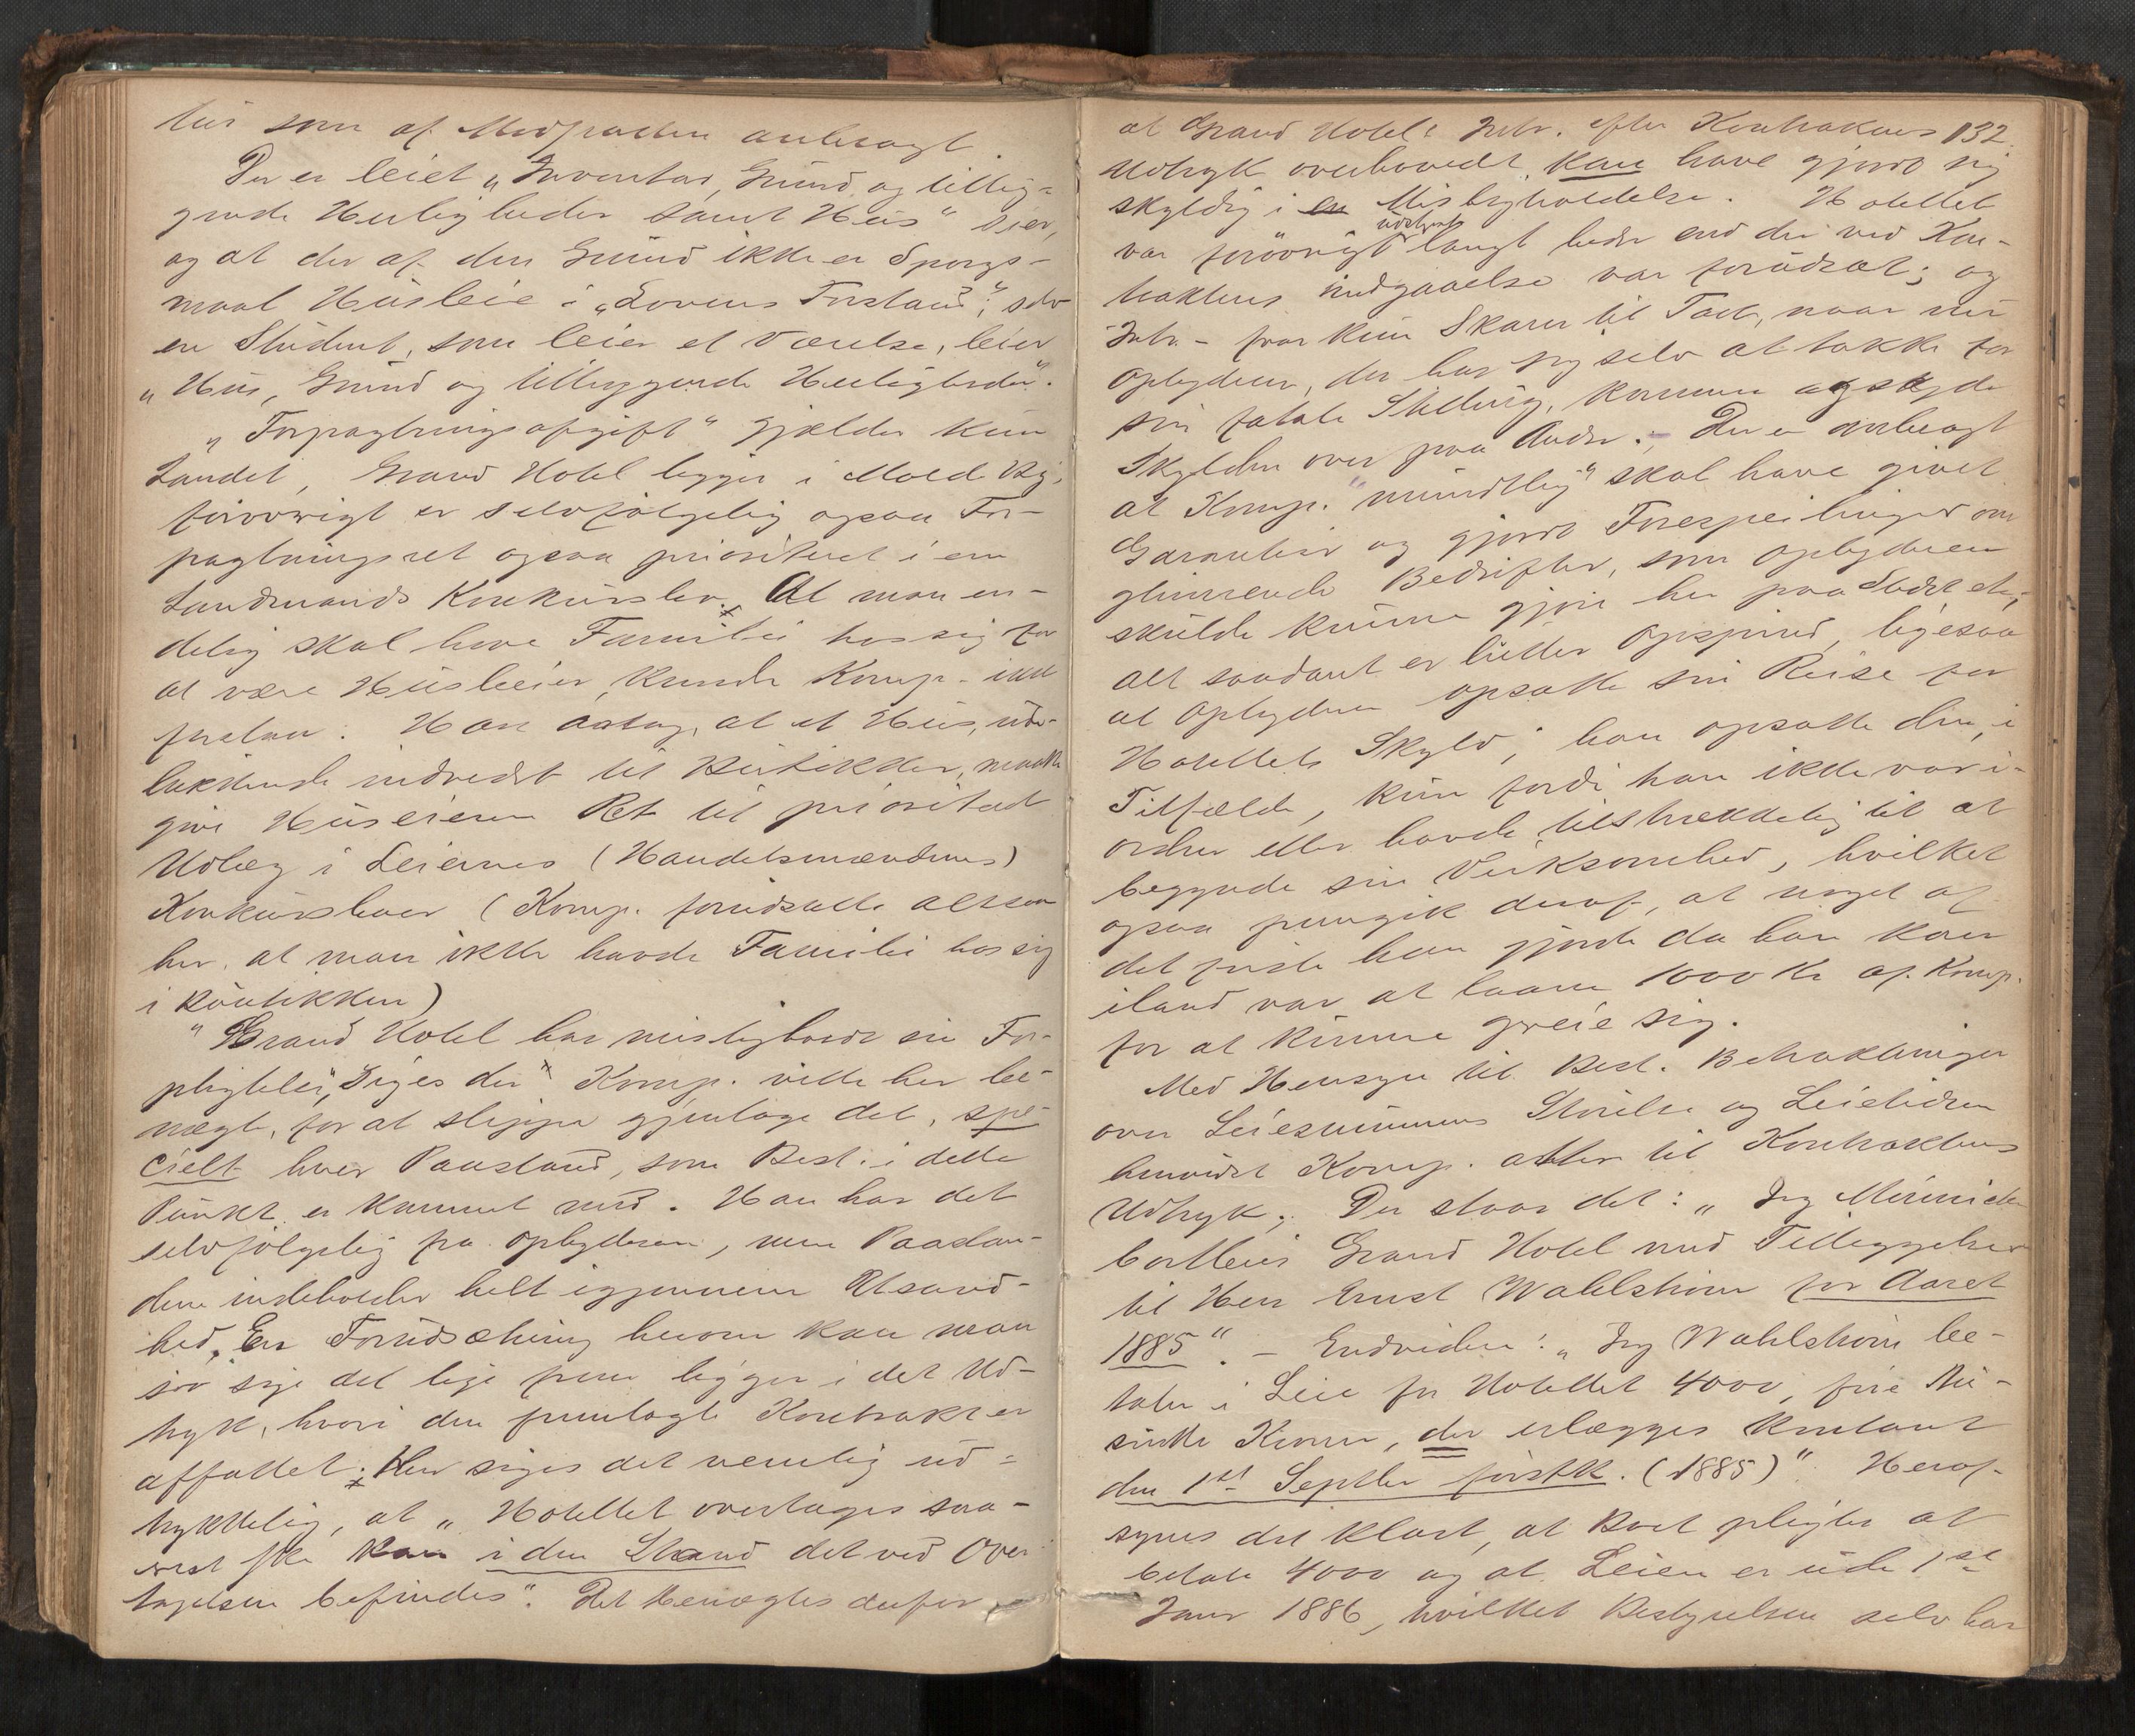 tur som af Modparten anbragt.
Der er leiet „Inventar, Grund og tillig=
gende Herligheder samt Hus" sier,
og at der af den Grund ikke er Spørgs-
maal Husleie i „Lovens Forstand"; selv
en Student, som leier et Værelse, leier
„Hus, Grund og tilliggende Herligheder".
„Forpagtningsafgift" gjælder kun
Landet, Grand Hotel ligger i Molde By;
forøvrigt er selvfølgelig ogsaa For-
pagtningsret ogsaa prioriteret i en
Landmands Konkursbo. At man en-
delig skal have Familie hos sig for
at være Husleier, kunde Komp. ikke
forstaa. Han antog, at et Hus, ude-
lukkende indredet til Butikker, maatte
give Huseieren Ret til prioriteret
Udlæg i Leiernes (Handelsmændenes)
Konkursboer (Komp. forudsatte altsaa
her, at man ikke havde Familie hos sig
i Butikken)
"Grand Hotel har misligholdt sin For-
pligtelse", siges der. Komp. vilde her be-
nægte, for at slippe gjentage det, spe-
cielt hver Paastand, som Best. i dette
Punkt er kommet med. Han har det
selvfølgelig fra Opbyderen, men Paastan-
dene indeholder helt igjennem Usand-
hed. En Forudsætning herom kan man
jo sige det lige frem ligger i det Ud-
tryk, hvori den fremlagte Kontrakt er
affattet. Her siges det nemlig ud=
trykkelig, at „Hotellet overtages saa-
vidt ske kan i den Stand det ved Over-
tagelsen befindes". Det benægtes derfor
at Grand Hotels Intr. efter Kontraktens 132.
Udtryk overhovedet kan have gjort sig
skyldig i en Misligholdelse. Hotellet
var forøvrigt udstyret langt bedre end der ved Kon-
traktens Indgaaelse var forudsat; og
Intr. faar kun Skarn til Tak, naar nu
Opbyderen, der har sig selv at takke for
sin fatale Stilling, kommer og skyder
Skylden over paa Andre. – Der er anbragt
at Komp. "mundtlig" skal have givet
Garantier og gjort Forespeilinger om
glimrende Bedrifter, som Opbyderen
skulde kunne gjøre her paa Stedet etc;
alt saadant er lutter Opspind, ligesaa
at Opbyderen opsatte sin Reise for
Hotellets Skyld; han opsatte den, i
Tilfælde, kun fordi han ikke var i-
orden eller havde tilstrækkelig til at
begynde sin Virksomhed, hvilket
ogsaa fremgik deraf, at noget af
det første han gjorde da han kom
iland var at laane 1000 Kr af Komp.
for at kunne greie sig.
Med Hensyn til Best. Betraktninger
over Leiesummens Størrelse og Leietiden
henviste Komp. atter til Kontraktens
Udtryk. Der staar det: „Jeg
bortleier Grand Hotel med Tilliggelser
til Herr Ernst Wahlstrøm for Aaret
1885". – Endvidere: „Jeg Wahlstrøm be-
taler i Leie for Hotellet 4000, fire Tu-
sinde Kroner, der erlægges kontant
den 1ste Septbr førstk. (1885)". Heraf
synes det klart, at Boet pligter at
betale 4000 og at Leien er ude 1ste
Janr 1886, hvilket Bestyrelsen selv har